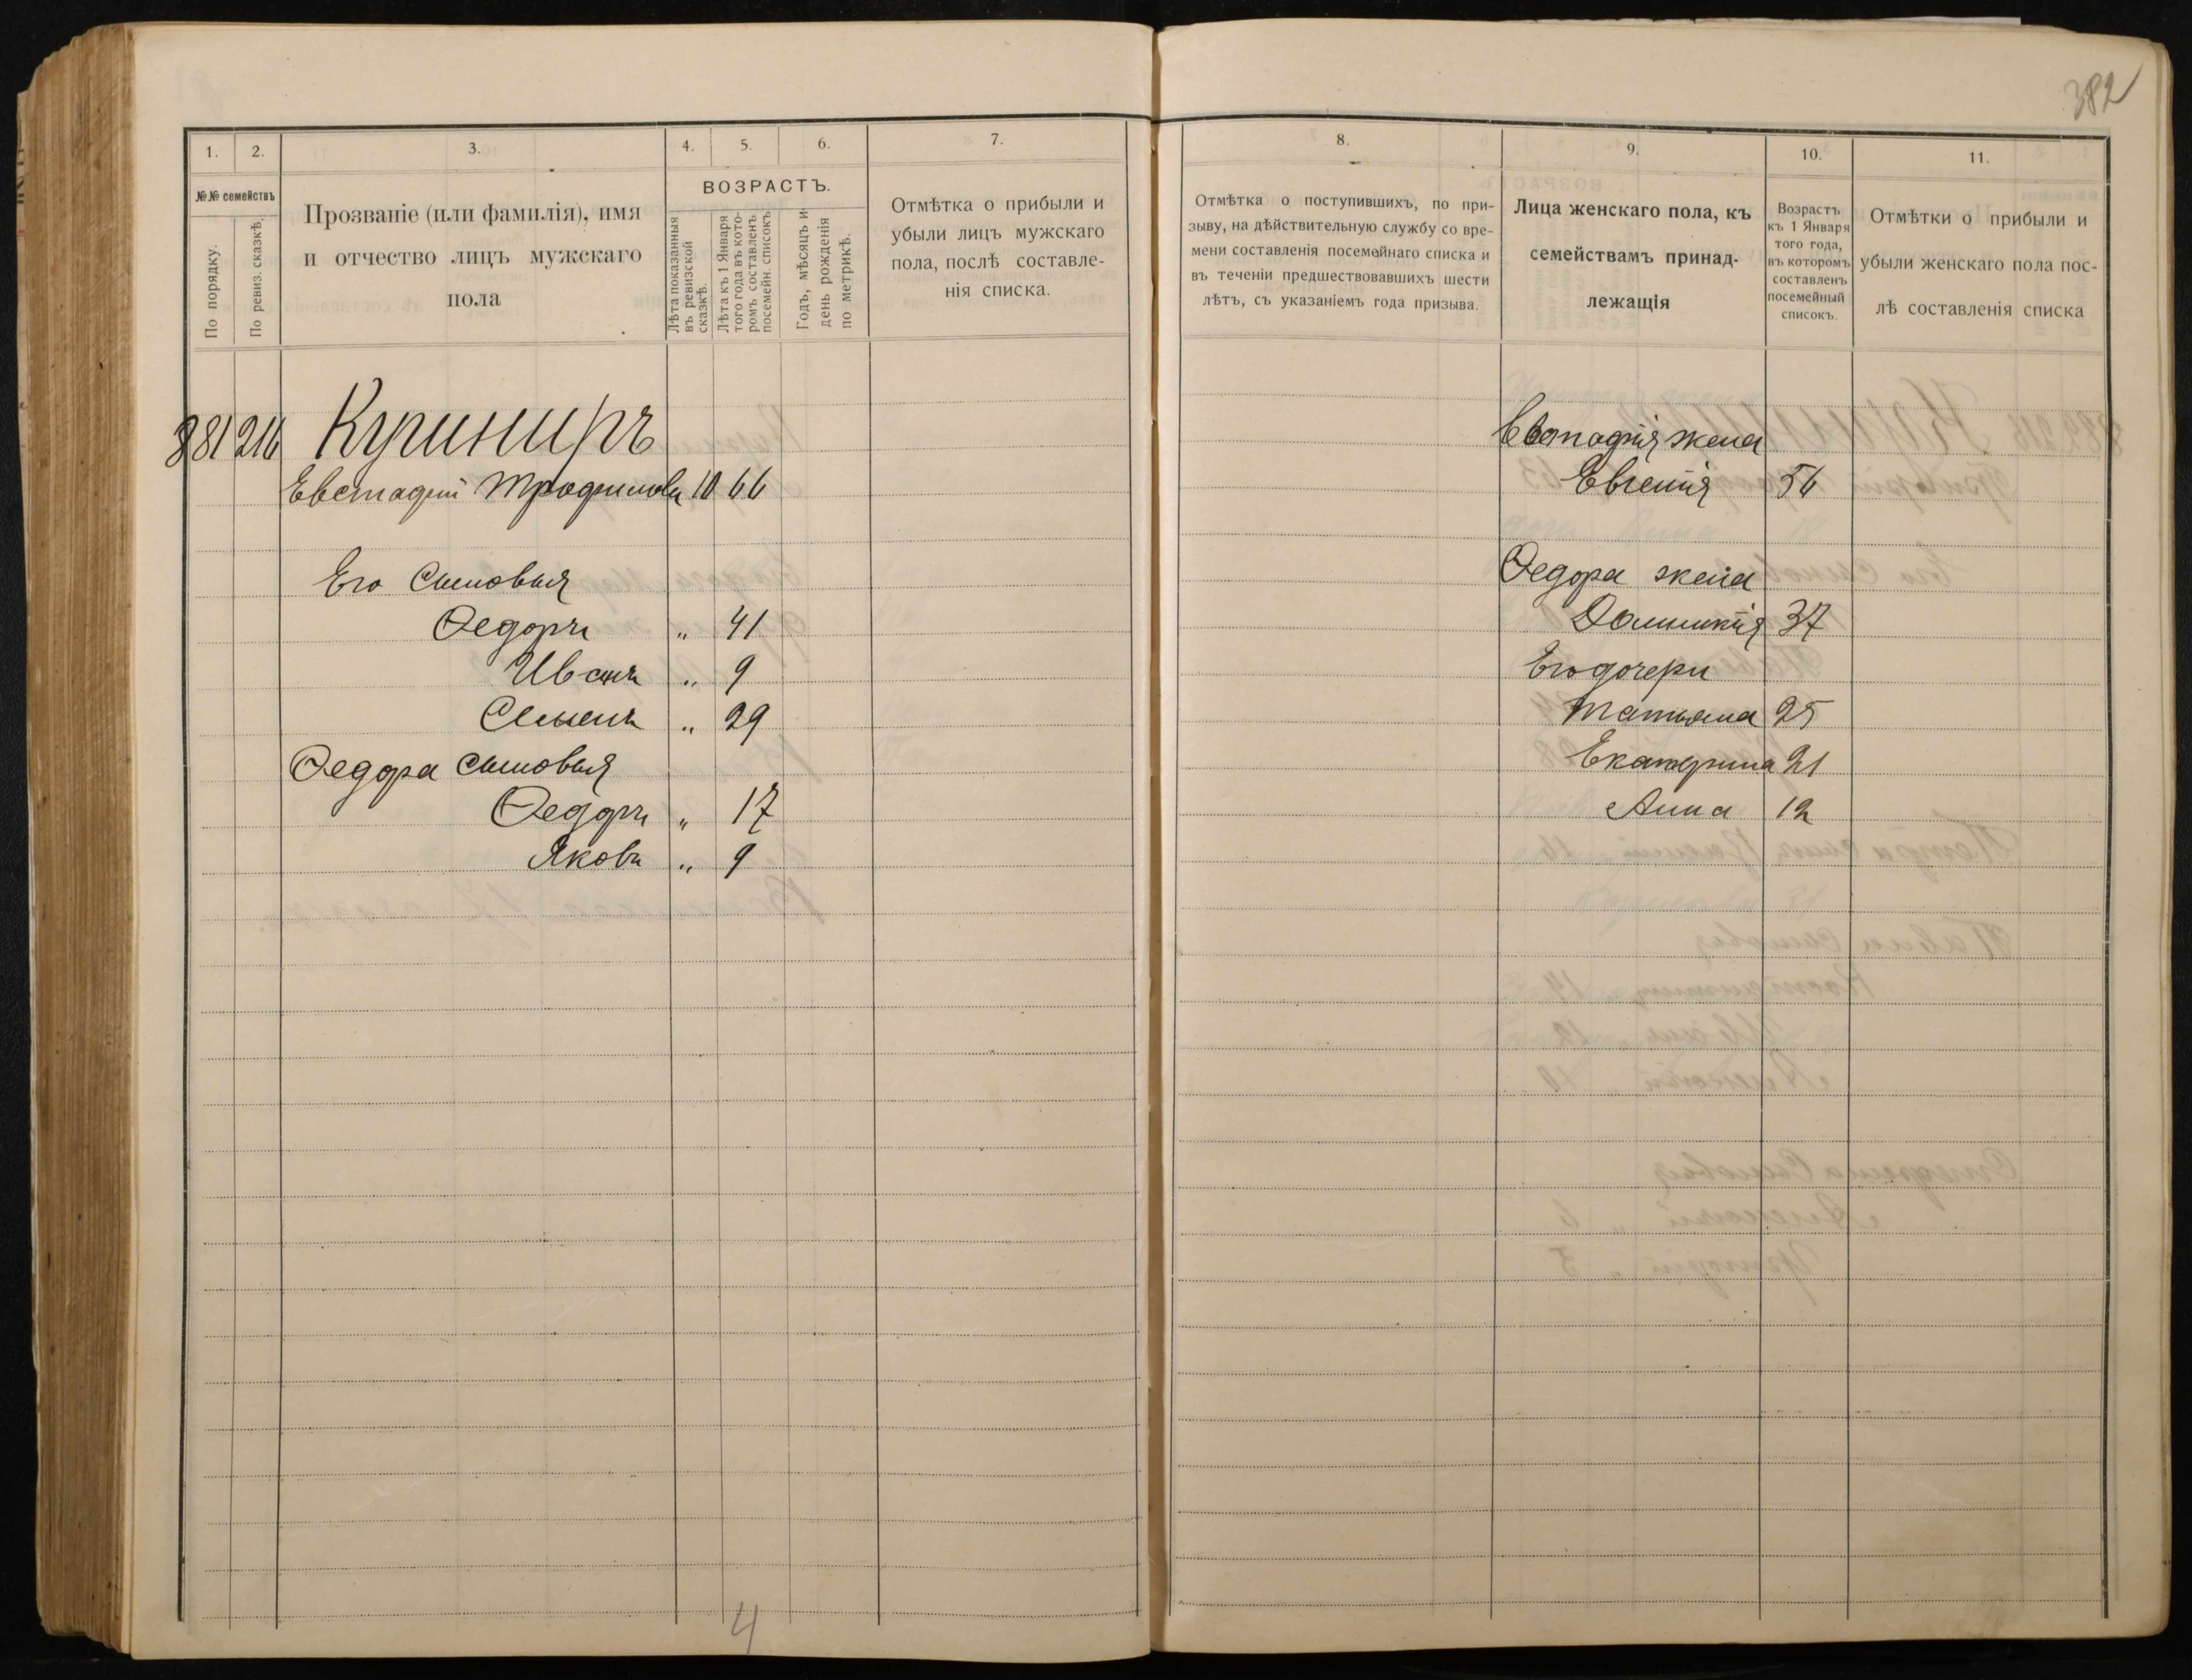 382
1. 2. 3. 4. 5. 6. 7.
№№ семействъ
По порядку.
По ревиз. сказкѣ.
Прозваніе (или фамилія), имя
и отчество лицъ мужскаго
пола
ВОЗРАСТЪ.
Лѣта показанныя
въ ревизской
сказкѣ.
Лѣта къ 1 Января
того года въ кото-
ромъ составленъ
посемейн. списокъ
Годъ, мѣсяцъ и
день рожденія
по метрикѣ.
Отмѣтка о прибыли и
убыли лицъ мужскаго
пола, послѣ составле-
нія списка.
881 216 Куриниръ
Евстафій Трофимовъ 10 66
Его Сыновья
Ѳедоръ „ 41
Иванъ „ 9
Семенъ „ 29
Ѳедора сыновья
Ѳедоръ „ 17
Яковъ „ 9
4
8. 9. 10. 11.
Отмѣтка о поступившихъ, по при-
зыву, на дѣйствительную службу со вре-
мени составленія посемейнаго списка и
въ теченіи предшествовавшихъ шести
лѣтъ, съ указаніемъ года призыва.
Лица женскаго пола, къ
семействамъ принад-
лежащія
Возрастъ
къ 1 Января
того года,
въ которомъ
составленъ
посемейный
списокъ.
Отмѣтки о прибыли и
убыли женскаго пола пос-
лѣ составленія списка
Евстафія жена
Евгенія 56
Ѳедора жена
Домникія 37
Его дочери
Татьяна 25
Екатерина 21
Анна 12